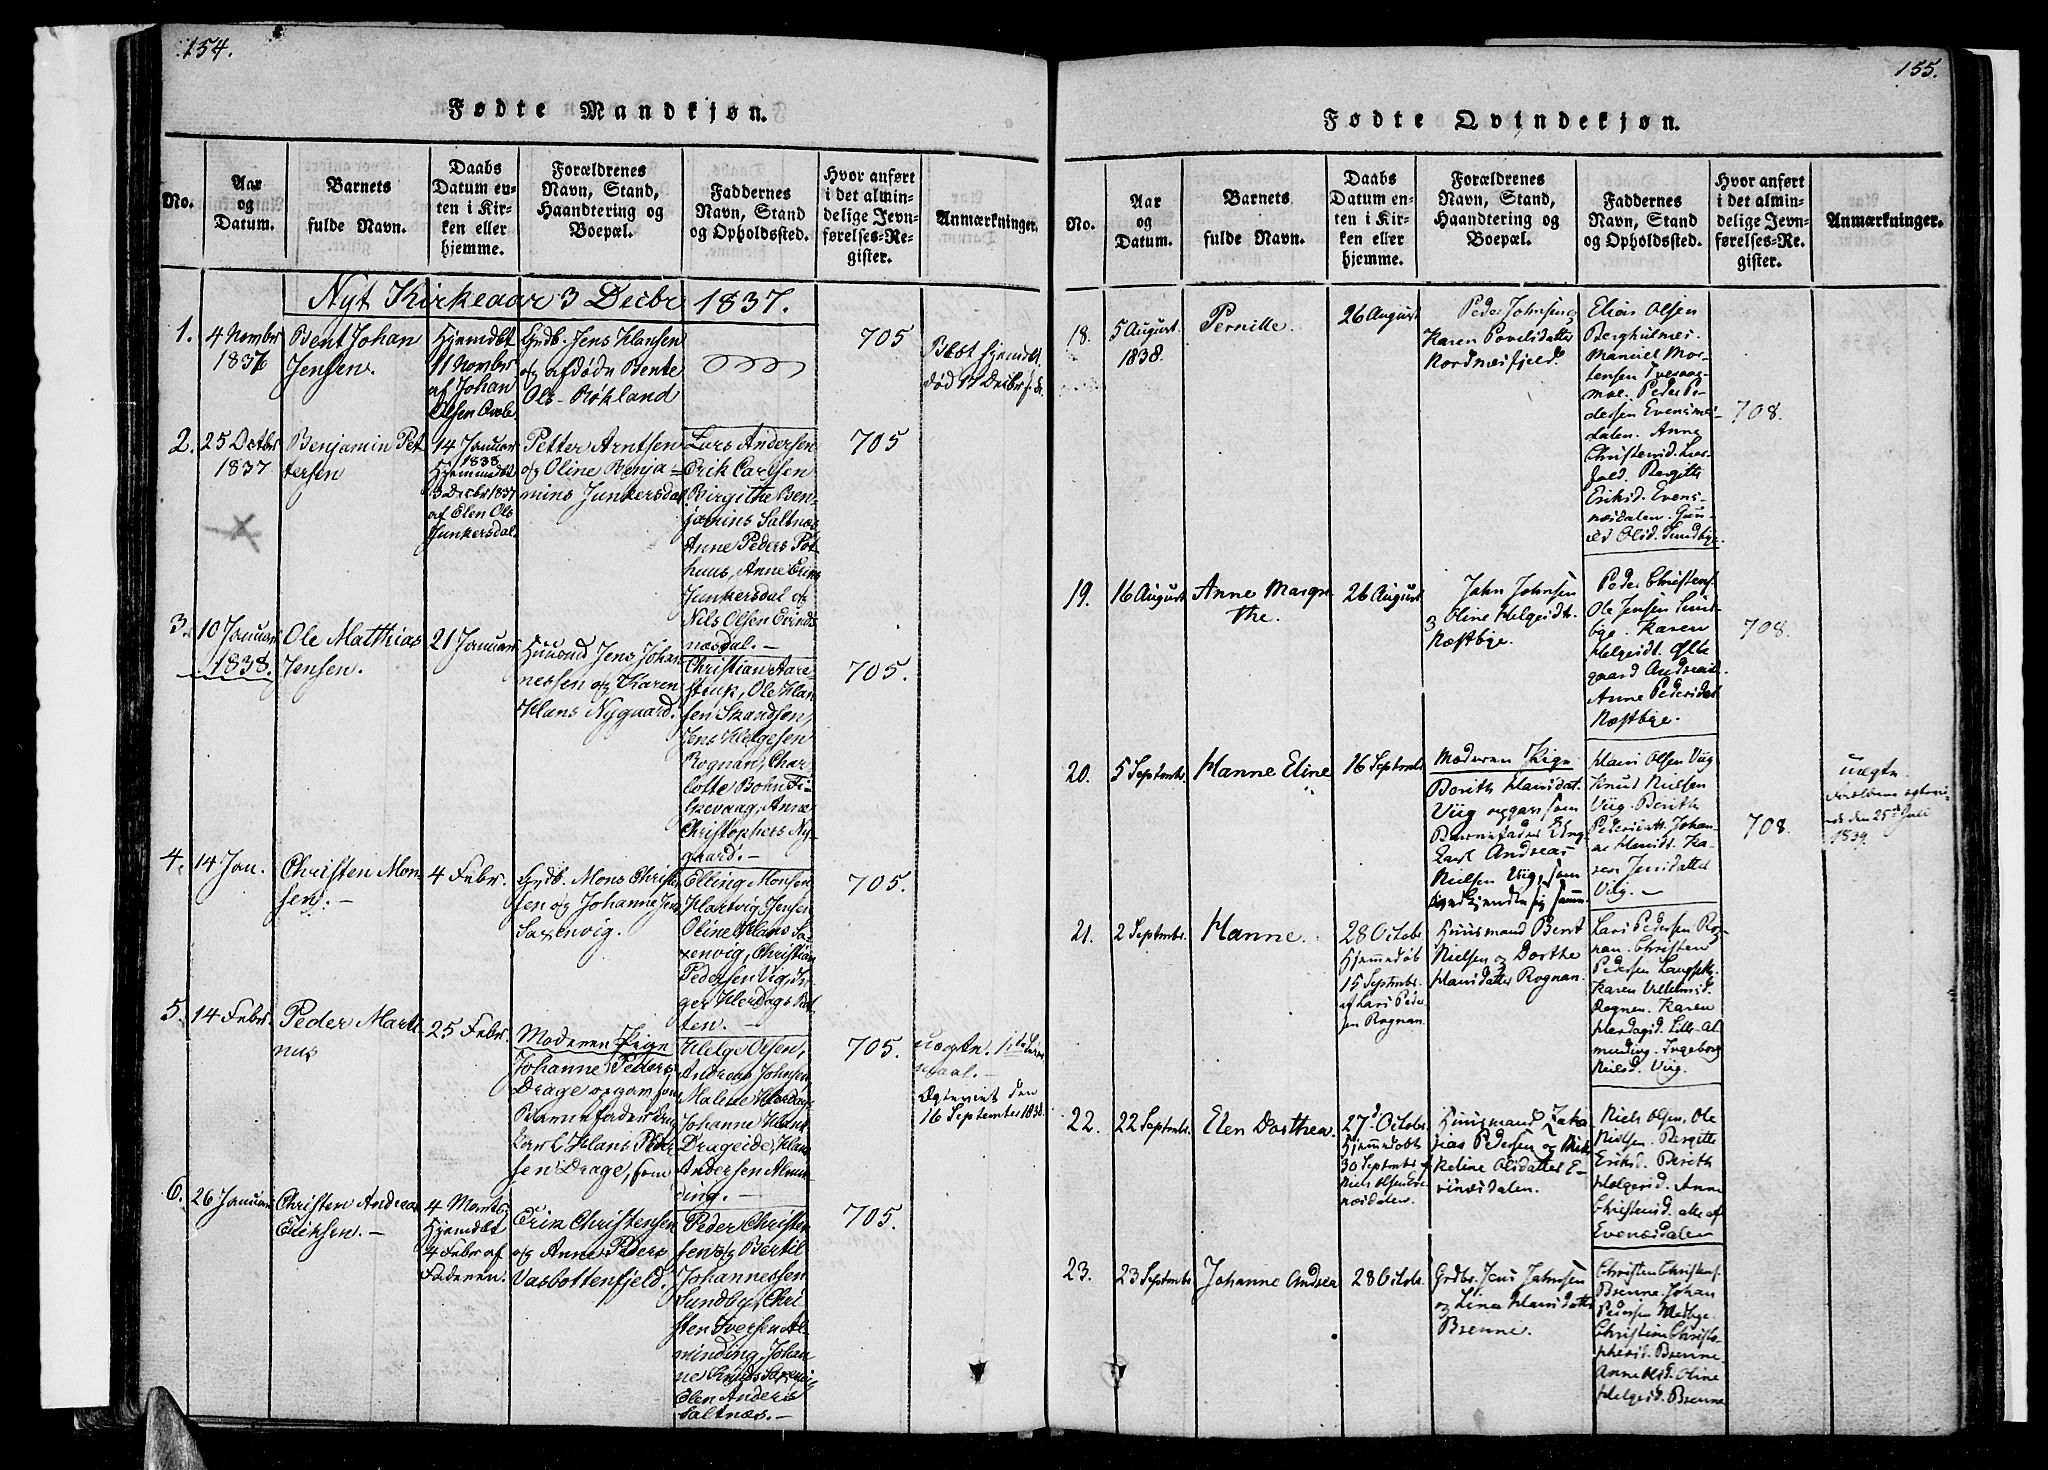 154.
Fødte Mandkjøn.
No.
Aar
og
Datum.
Barnets
fulde Navn.
Daabs
Datum en-
ten i Kir-
ken eller
hjemme.
Forældrenes
Navn, Stand,
Haandtering og
Boepæl.
Faddernes
Navn, Stand
og Opholdssted.
Hvor anført
i det almin-
delige Jevn-
førelses-Re-
gister.
Anmærkninger.
Nyt Kirkeaar 3 Decbr 1837.
1.
4 Novmbr
1837
Bent Johan
Jensen.
Hjemdøbt
11 Novmbr
af Johan
Olsen
Grdb. Jens Hansen
og afdøde Bente
Ols. Røkland
705
død 17 Decbr
2.
25 Octbr
1837
Benjamin Pet
tersen
14 Januar
1838
3 Decbr 1837
af Elen Ols
Junkersdal.
Petter Arntsen
og Oline Benja-
mins Junkersdal
Lars Andersen
Erik Carlsen
Birgithe Ben-
jamins Saltnæs
Anne Peders Pot-
huus, Anne Erins
Junkersdal og
Nils Olsen Evinds
næsdal.-
705
3.
10 Januar
1838.
Ole Matthias
Jensen.
21 Januar
Huusmd Jens Johan
nessen og Karen
Hans Nygaard.
Christian Aare-
Ole Han
sen
Jens Helgesen
Rognan, Char-
lotte Bohn Fi-
skevaag, Anne
Christophers Ny-
gaard.-
705.
4.
14 Jan.
Christen Mon
sen.-
4 Febr.
Grdb. Mons Christen
sen og Johanne Jens
Saxenvig.
Elling Monsen
Hartvig Jensen
Oline Hans Sa-
xenvig, Christian
Pedersen Vig, In-
ger Herdags
ten.-
705.
5.
14 Febr.
Peder Marti
nus
25 Febr.
Moderen Pige
Johanne Peders
Drage og som
Barnefader Ung
karl Hans Peder
sen Drage, som
Helge Olsen,
Andreas Johnsen
Malene Herdags
Johanne Hans
Drageide, Hans
Andersen Almin
ding.-
705.
uægte. 1ste Leier
maal.-
Ægteviet den
16 September 1838.
6.
26 Januar
Christen Andreas
Eriksen.-
4 Marts
Hjemdøbt
4 Febr af
Faderen.
Erik Christensen
og Anne Peders
Vasbottenfjeld.
Peder Christen
sen og Bertil
Johannessen
Sundby, Chri-
sten Iversen Al-
minding, Johan
ne Knuds Saxenvig
Elen Anders
Saltnæs.-
705.
155.
Fødte Qvindekjøn.
No.
Aar
og
Datum.
Barnets
fulde Navn.
Daabs
Datum en-
ten i Kir-
ken eller
hjemme.
Forældrenes
Navn, Stand,
Haandtering og
Boepæl.
Faddernes
Navn, Stand
og Opholdssted.
Hvor anført
i det almin-
delige Jevn-
førelses-Re-
gister.
Anmærkninger.
18.
5 August.
1838.
Pernille.
26 August
Peder Johnsen og
Karen Povelsdatter
Nordnæsfjeld.
Elias Olsen
Berghulnes.
Manuel Mor-
tensen Tveraag-
moe. Peder Pe-
dersen Evensnes-
dalen. Anne
Christensd.
Bergitte
Eriksd. Evens-
næsdalen. Gun-
ild Olsd. Sundbye.
708.
19.
16 August
Anne Margre
the.
26 August
Jahn Johnsen
og Oline Helgesdt.
Næstbye.
Peder Christens.
Ole Jensen Sund-
bye. Karen
Helgesdt.
gaard Andreas
Anne Pedersdat
Næstbye.
708.
20.
5 Septmbr.
Hanne Eline
16 Septmbr
Moderen Pige
Berith Hansdat.
Viig og som
Barnefader Ung-
karl Andreas
Nielsen Viig som
Hans Olsen Viig
Knud Nielsen
Viig. Berith
Pedersdatt. Johan-
ne Hansdt. Ka-
ren Jensdatter
Viig.-
708.
uægte.
Forældrene
den 25de Juli
1839.
21.
2 Septmbr.
Hanne.
28 Octobr
Hjemmedøb
15 Septmbr.
af Lars Peder
sen Rognan.
Huusmand Bent
Nielsen og Dorthe
Hansdatter Rognan.
Lars Pedersen Rog-
nan. Christen
Pedersen
Karen Villumsd.
Rognen. Karen
Herdagsd. Lille Al
minding. Ingeborg
Nielsd. Viig.
22.
22 Septmbr.
Elen Dorthea.
27d Octobr
Hjemmedøbt
30 Septmbr af
Niels Olsen Eve-
næsdalen.
Huusmand Zaka-
rias Pedersen og Mik
keline Olsdatter E-
vinæsdalen.
Niels Olsen, Ole
Nielsen. Bergitte
Eriksd. Berith
Helgesd. Anne
Christensd. alle af
Evenæsdalen
23.
23 Septmbr.
Johanne Andrea
28 Octobr.
Grdbr. Jens Jahnsen
og Lina Hansdatter
Brenne.
Christen Christens.
Brenne. Johan
Pedersen Medbye
Christine Christo-
phersd. Brenne.
Anne Olsd. Oline
Helgesd. Brenne